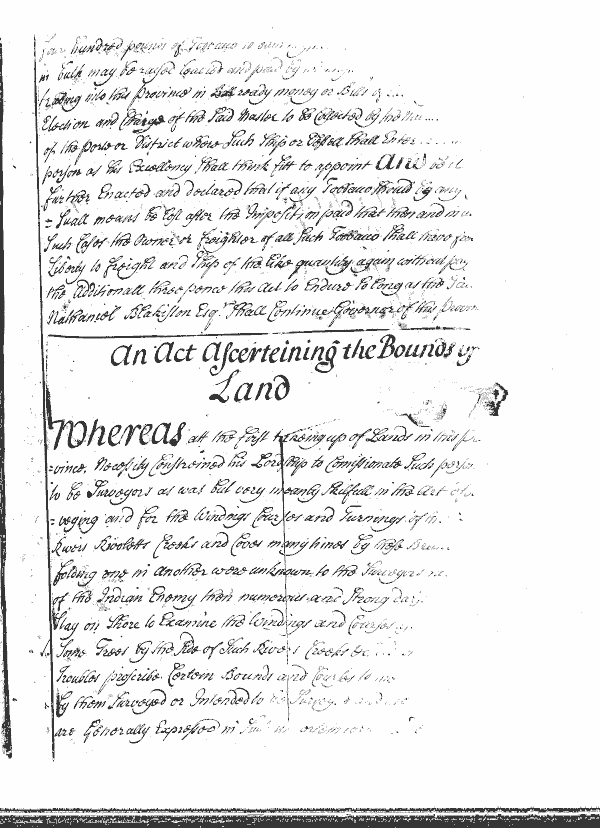 hundred pounds of Tobacco
in bulk may be raised leavied and paid by
trading into this Province in ready money or Bills of
Election and Charge of the Said Master to be Collected by the
of the Porte or District where Such Ship or Vessell shall Enter
person as his Excellency shall think fitt to appoint And be it
further Enacted and declared that if any Tobacco should by any
=suall means be lost after the Imposition paid that then and in
Such Cases the Owner or freighter of all Such Tobacco shall have
Liberty to freight and Ship of the like quantity again without
the Additionall three pence this Act to Endure so long as
Nathaniel Blakiston Esqr. Shall Continue Governor of this
An Act Ascerteining the Bounds of
Land
Whereas att the first takeing up of Lands in this
=vince, Necessity Constreined his Lordship to Comissionate Such
to be Surveyors as was but very meanly skilfull in the Art of
=veying and for the Windings Courses and Turnings of
Rivers Rivoletts Creeks and Coves many times by these
folding one in another were unknown to the Surveyors
of the Indian Enemy then numerous and Strong
Stay on Shore to Examine the Windings and Courses
Some Trees by the side of Such Rivers Creeks
Troubles prescribe Certain Bounds and Courses to
by them Surveyed or Intended to
are Generally Expressed in